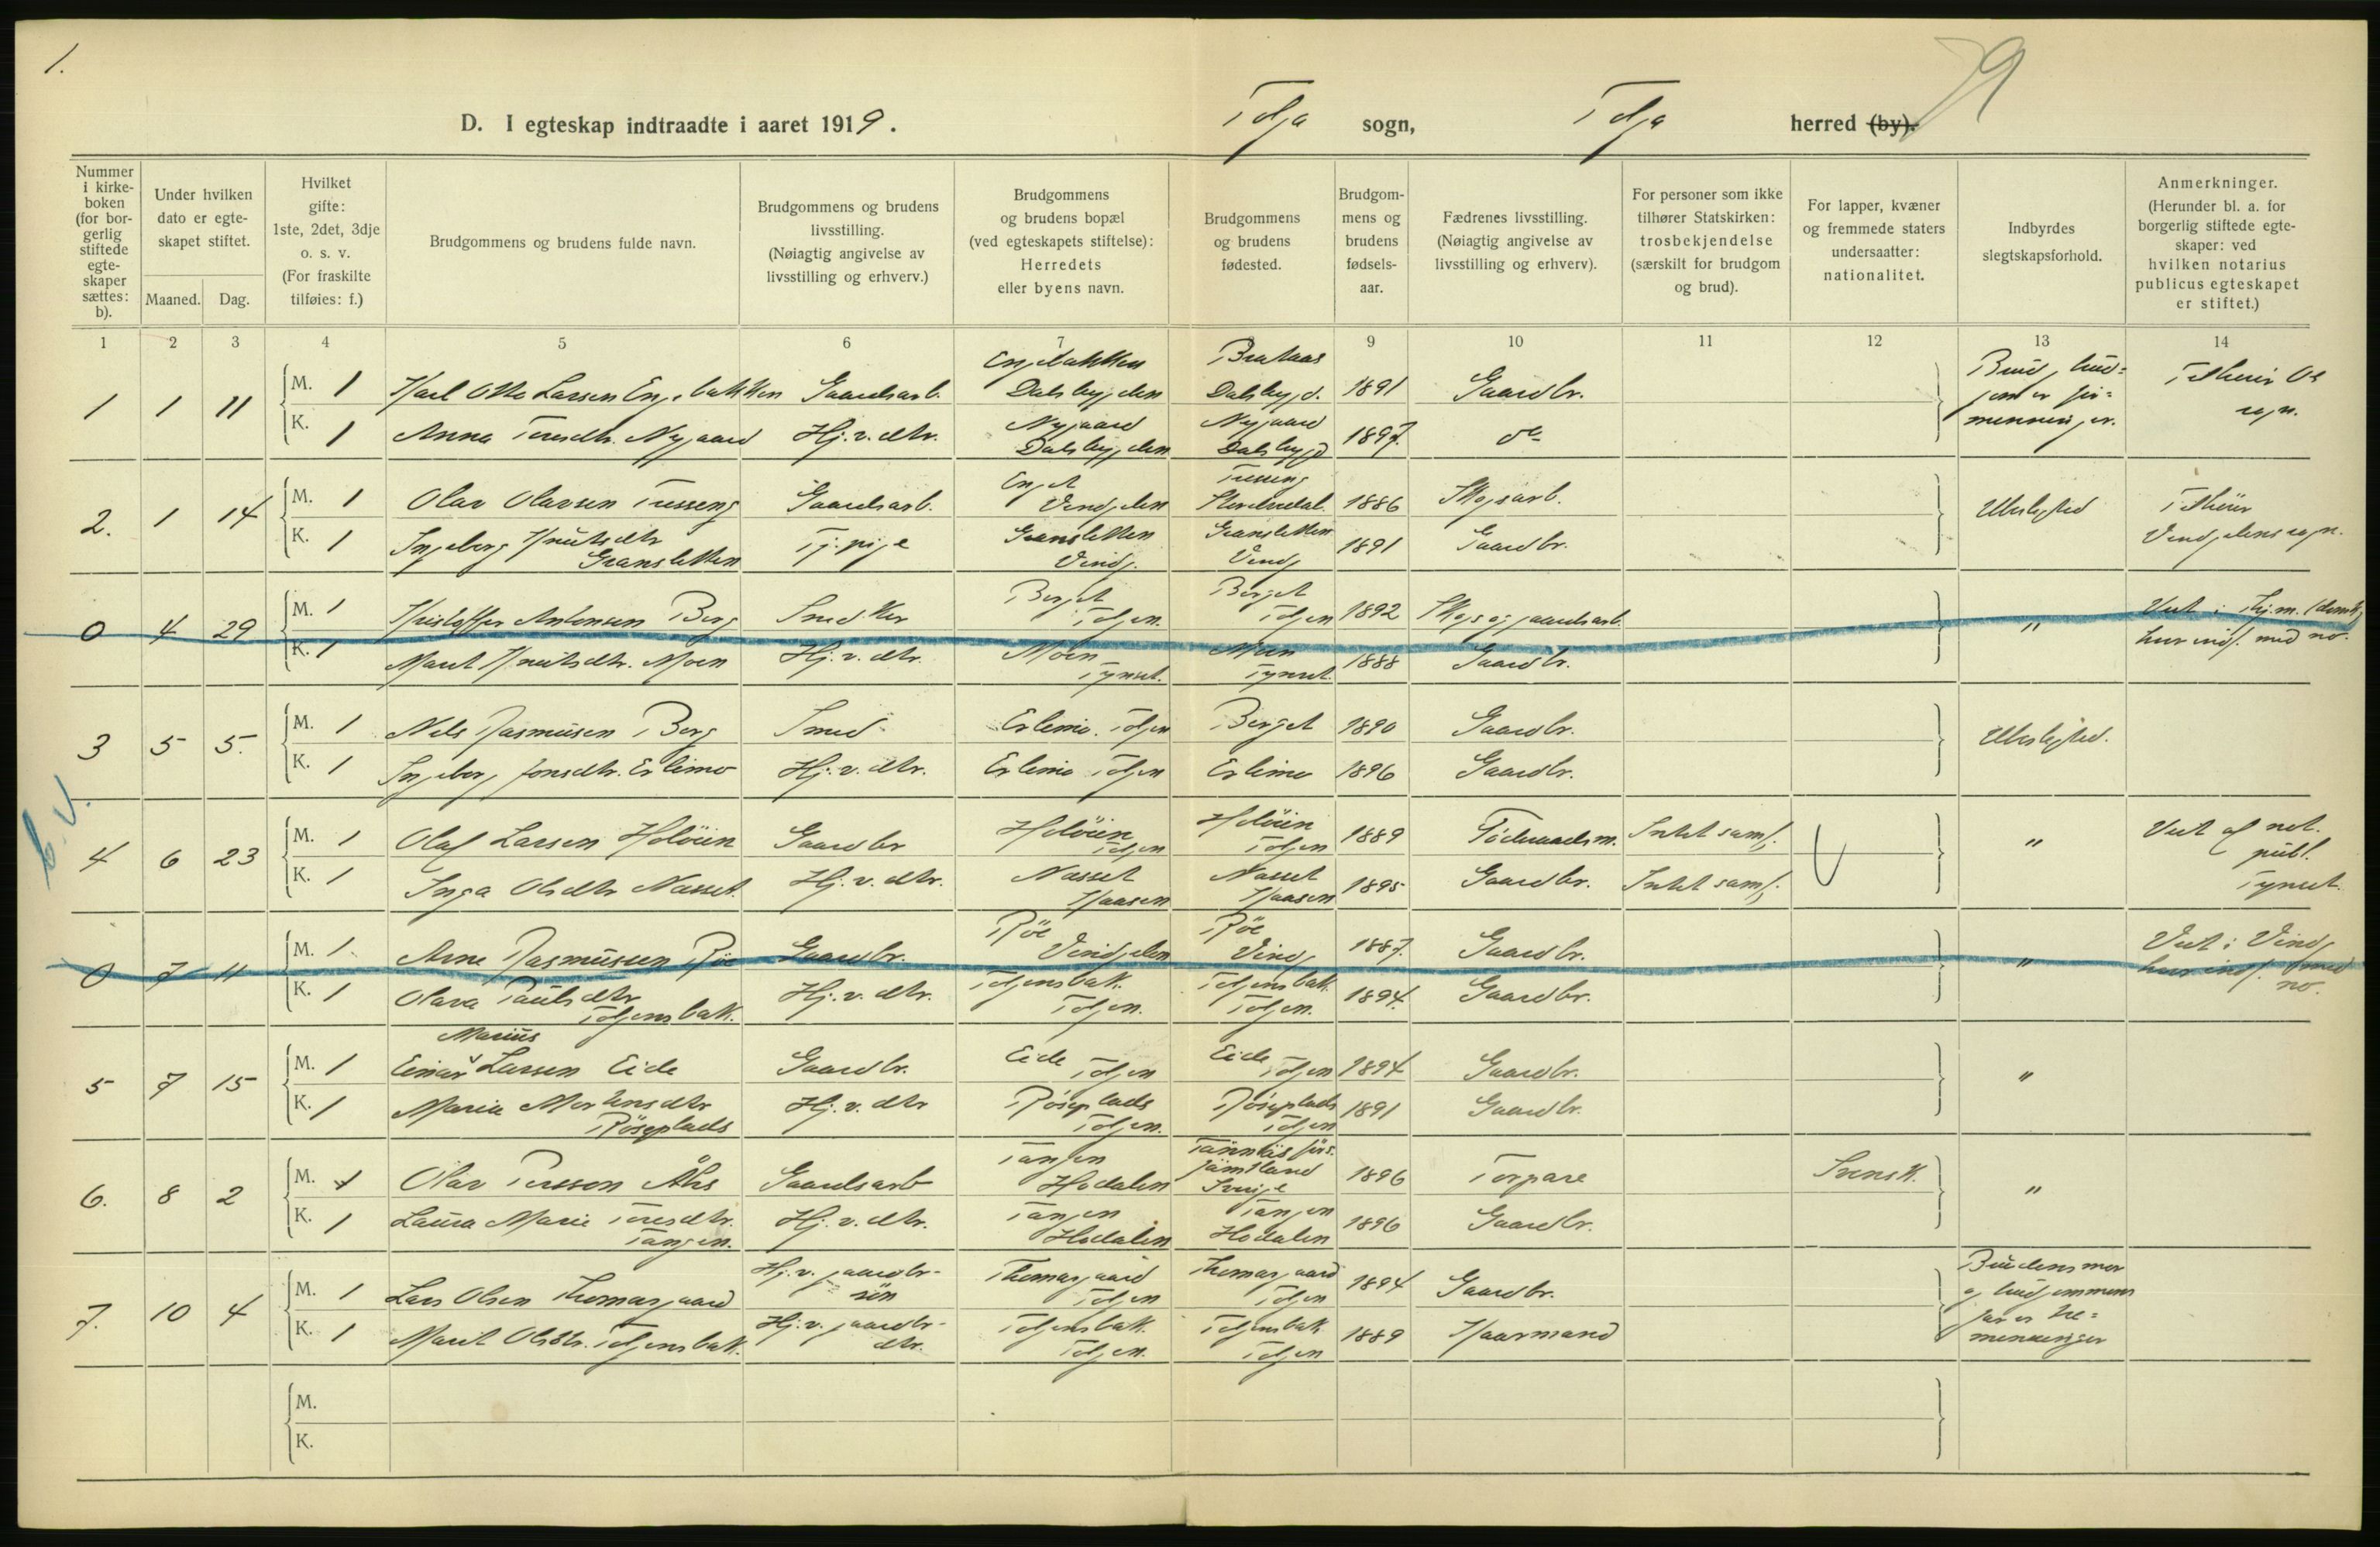 1.
D. I egteskap indtraadte i aaret 1919. Tolga sogn, Tolga herred (by).
Nummer i kirkeboken (for borgerlig stiftede egteskaper sættes: b).
Under hvilken dato er egteskapet stiftet.
Maaned. Dag.
Hvilket gifte: 1ste, 2det, 3dje o. s. v. (For fraskilte tilføies: f.)
Brudgommens og brudens fulde navn.
Brudgommens og brudens livsstilling. (Nøiagtig angivelse av livsstilling og erhverv.)
Brudgommens og brudens bopæl (ved egteskapets stiftelse): Herredets eller byens navn.
Brudgommens og brudens fødested.
Brudgommens og brudens fødselsaar.
Fædrenes livsstilling. (Nøiagtig angivelse av livsstilling og erhverv).
For personer som ikke tilhører Statskirken: trosbekjendelse (særskilt for brudgom og brud).
For lapper, kvæner og fremmede staters undersaatter: nationalitet.
Indbyrdes slegtskapsforhold.
Anmerkninger. (Herunder bl. a. for borgerlig stiftede egteskaper: ved hvilken notarius publicus egteskapet er stiftet.)
1 2 3 4 5 6 7 9 10 11 12 13 14
1 1 11
M. 1 Karl Otto Larsen Engebakken Gaardsarb. Engebakken Dalsbygden Brataas Dalsbygd. 1891 Gaardbr.
K. 1 Anna Toresdtr. Nygaard Hj. v. dtr. Nygaard Dalsbygden Nygaard Dalsbygd 1897. do
Tilhører Os sogn.
2. 1 14
M. 1 Olav Olavsen Tusseng Gaardsarb. Enget Vingelen 1886 Skogsarb.
K. 1 Ingeborg Knutsdtr Granslettin Tj. pige Granslettin Ving. Granslettin Ving 1891 Gaardbr.
Ubeslegted Tilhører Vingelens sogn.
0 4 29
M. 1 Kristoffer Antonsen Berg Snedker Berget Tolgen. Berget Tolgen 1892 Skogs og gaardsarb.
K. 1 Marit Knutsdtr. Moen Hj. v. dtr. Moen Tynset. Moen Tynset. 1888 Gaardbr.
" her indf. med no.
3 5 5.
M. 1 Nils Rasmusen Berg Smed Erlimo. Tolgen Berget 1890 Gaardbr.
K. 1 Ingeborg Jonsdtr. Erlimo Hj. v. dtr. Erlimo Tolgen Erlimo 1896 Gaardbr.
Ubeslegted.
b. v.
4 6 23
M. 1 Olaf Larsen Holöien Gaardbr Holöien Tolgen Holöien Tolgen 1889 Föderaadsm. Intet samf.
K. 1 Inga Olsdtr Nasset. Hj. v. dtr. Nasset Haasen Nasset Haasen 1895 Gaardbr. Intet samf.
" Viet af not. publ. Tynset.
0 7 11
M. 1. Arne Rasmussen Röe Gaardbr. Röe Vingelen Röe Ving 1887. Gaardbr.
K. 1 Olava Paulsdtr Tolgensbak. Hj. v. dtr. Tolgensbak. Tolgen. Tolgensbak. Tolgen. 1894. Gaardbr.
" Viet i Ving, her indf. med no.
5 7 15
Marius
M. 1 Einar Larsen Eide Gaardbr. Eide Tolgen Eide Tolgen 1894 Gaardbr.
K. 1 Maria Mortensdtr Röseplads Hj. v. dtr Röseplads Tolgen. Röseplads Tolgen 1891 Gaardbr.
"
6. 8 2
M. 1 Olav Persson Åhs Gaardsarb Tangen Hodalen Tännäs förs. Jämtland Sverige 1896 Torpare Svensk.
K. 1 Laura Marie Toresdtr. Tangen. Hj. v. dtr. Tangen Hodalen Tangen Hodalen 1896 Gaardbr.
"
7. 10 4
M. 1 Lars Olsen Thomasgaard Hj. v. gaardbr-sön Thomasgaard Tolgen Thomasgaard Tolgen 1894 Gaardbr.
K. 1 Marit Olsdtr. Tolgensbak. Hj. v. gaardbr-dtr. Tolgensbak. Tolgen. Tolgensbak Tolgen 1889 Haarmand
Brudens mor og brudgommens far er tremenninger
M.
K.